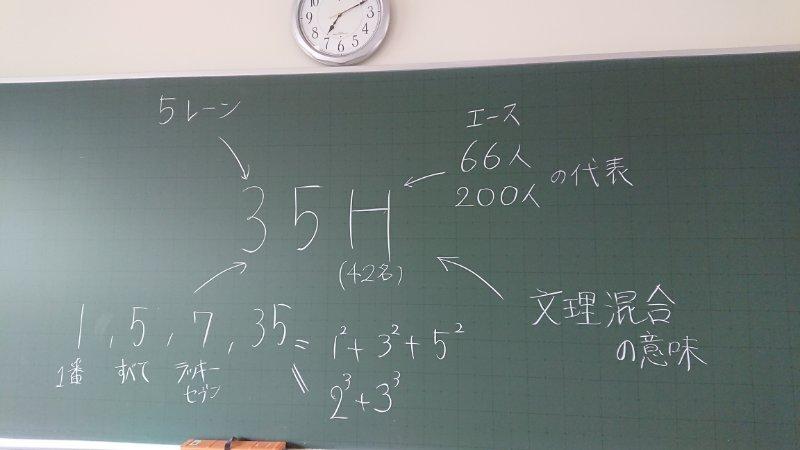 10
9
8
7
6
5
4
3
5レーン
エース
66人
200人
の代表
35H
(42名)
1, 5, 7, 35 = 1²+3²+5²
1番 すべて ラッキー
セブン
= 2³+3³
文理混合
の意味